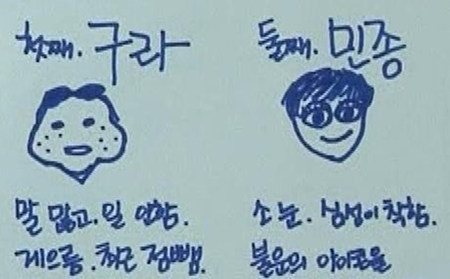 첫째. 구라
둘째. 민종
말 많고. 일 안함.
게으름. 최근 점뺌.
소 눈. 심성이 착함.
불운의 아이콘을